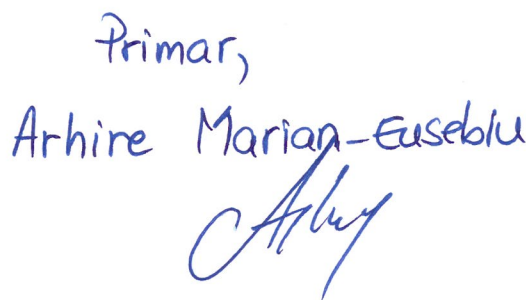 Primar,
Arhire Marian-Eusebiu